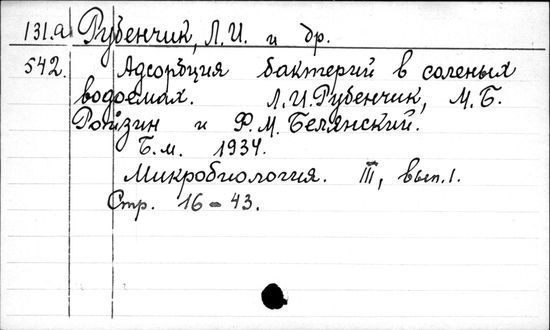 131.а Рубенчик, Л.И. и др.
542. Адсорбция бактерий в соленых
водоемах. Л.И.Рубенчик, М.Б.
Ройзин и Ф.М.Белянский.
Б.м. 1934.
Микробиология. III, вып.1.
Стр. 16-43.